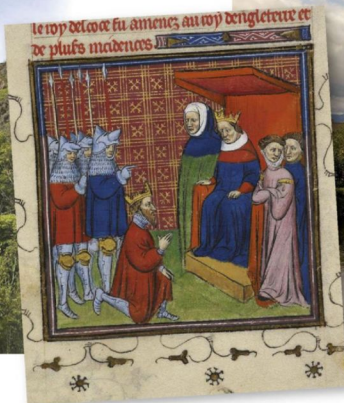 le roy descoce fu amenez au roy dengleterre et
de plus̾s incidences